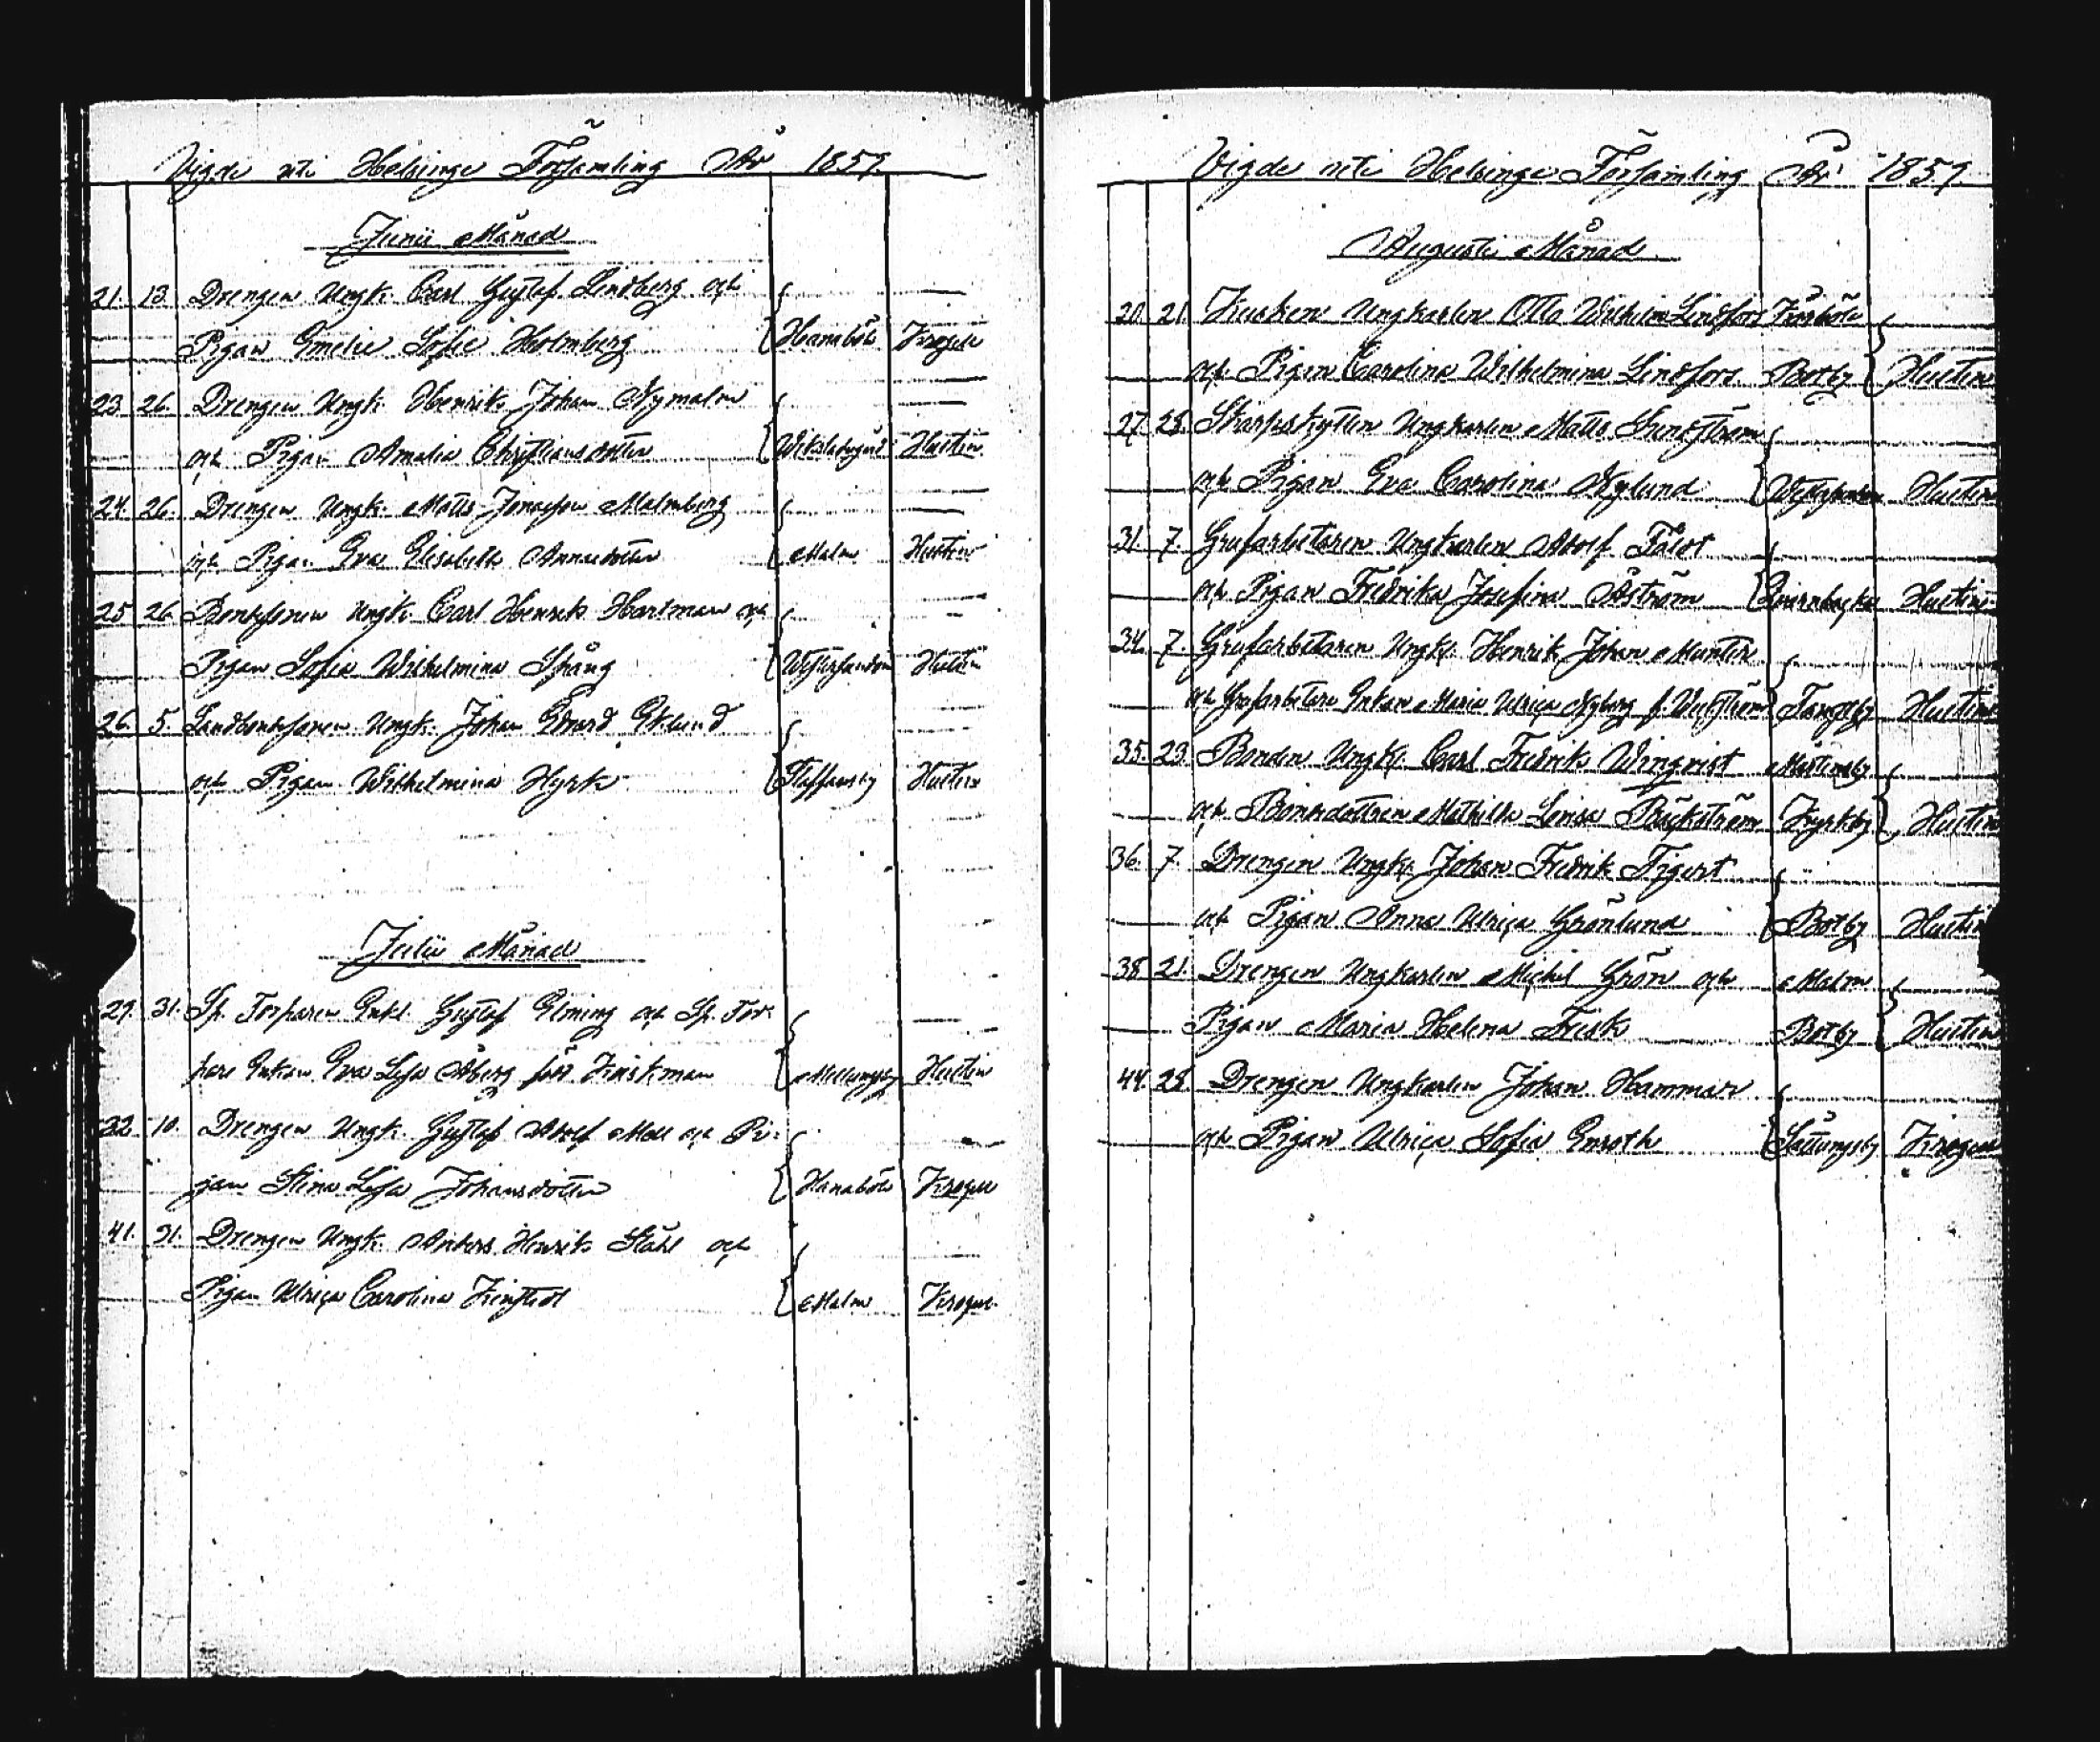 Vigde uti Helsinge Församling År 1857.
Junii Månad
21. 13. Drengen Ungk. Carl Gustaf Lindberg och
Pigan Emelie Sofie Holmberg Hanaböle Kroger
23. 26. Drengen Ungk. Henrik Johan Nymalm
och Pigan Amalia Christiansdotter Hustin
24. 26. Drengen Ungk. Matts Jonasson Malmberg
och Pigan Eva Elisabeth Annaedotter Malm Hustin
25. 26. Bondesonen Ungk. Carl Henrik Hartman och
Pigan Sofia Wilhelmina Spång Westersundom Hustin
26. 5. Landbondesonen Ungk. Johan Edvard Eklund
och Pigan Wilhelmina Hyrk Staffansby Hustin
Julii Månad
29. 31. Sp. Torparen Enkl. Gustaf Elming och Sp. Tor-
pare Enkan Eva Lisa Åberg född Kinkman Mellungsby Hustin
32. 10. Drengen Ungk. Gustaf Adolf Mell och Pi-
gan Stina Lisa Johansdotter Hanaböle Kroger
41. 31. Drengen Ungk. Anders Henrik Ståhl och
Pigan Ulrica Carolina Malm Kroger
Vigde uti Helsinge Församling År 1857.
Augusti Månad
20. 21. Kusken Ungkarlen Otto Wilhelm Lindfors Kårböle
och Pigan Carolina Wilhelmina Lindfors Botby Hustin
27. 28. Skarpskytten Ungkarlen Matts Sundström
och Pigan Eva Carolina Nylund Westersundom Hustin
31. 7. Grufarbetaren Ungkarlen Adolf Fält
och Pigan Fredrika Josefina Åström Qvarnbacka Hustin
34. 7. Grufarbetaren Ungk. Henrik Johan Munter
och Grufarbetare Enkan Maria Ulrica Nyberg f. Wickström Fangelby Hustin
35. 23. Bonden Ungk. Carl Fredrik Winqvist Mårtensby
och Bondedottren Mathilda Lovisa Bäckström Kyrkby Hustin
36. 7. Drengen Ungk. Johan Fredrik Tigert
och Pigan Anna Ulrica Grönlund Botby Hustin
38. 21. Drengen Ungkarlen Michel Grön och Malm
Pigan Maria Helena Frisk Botby Hustin
44. 28. Drengen Ungkarlen Johan Hammar
och Pigan Ulrica Sofia Enroth Sottungsby Kroger